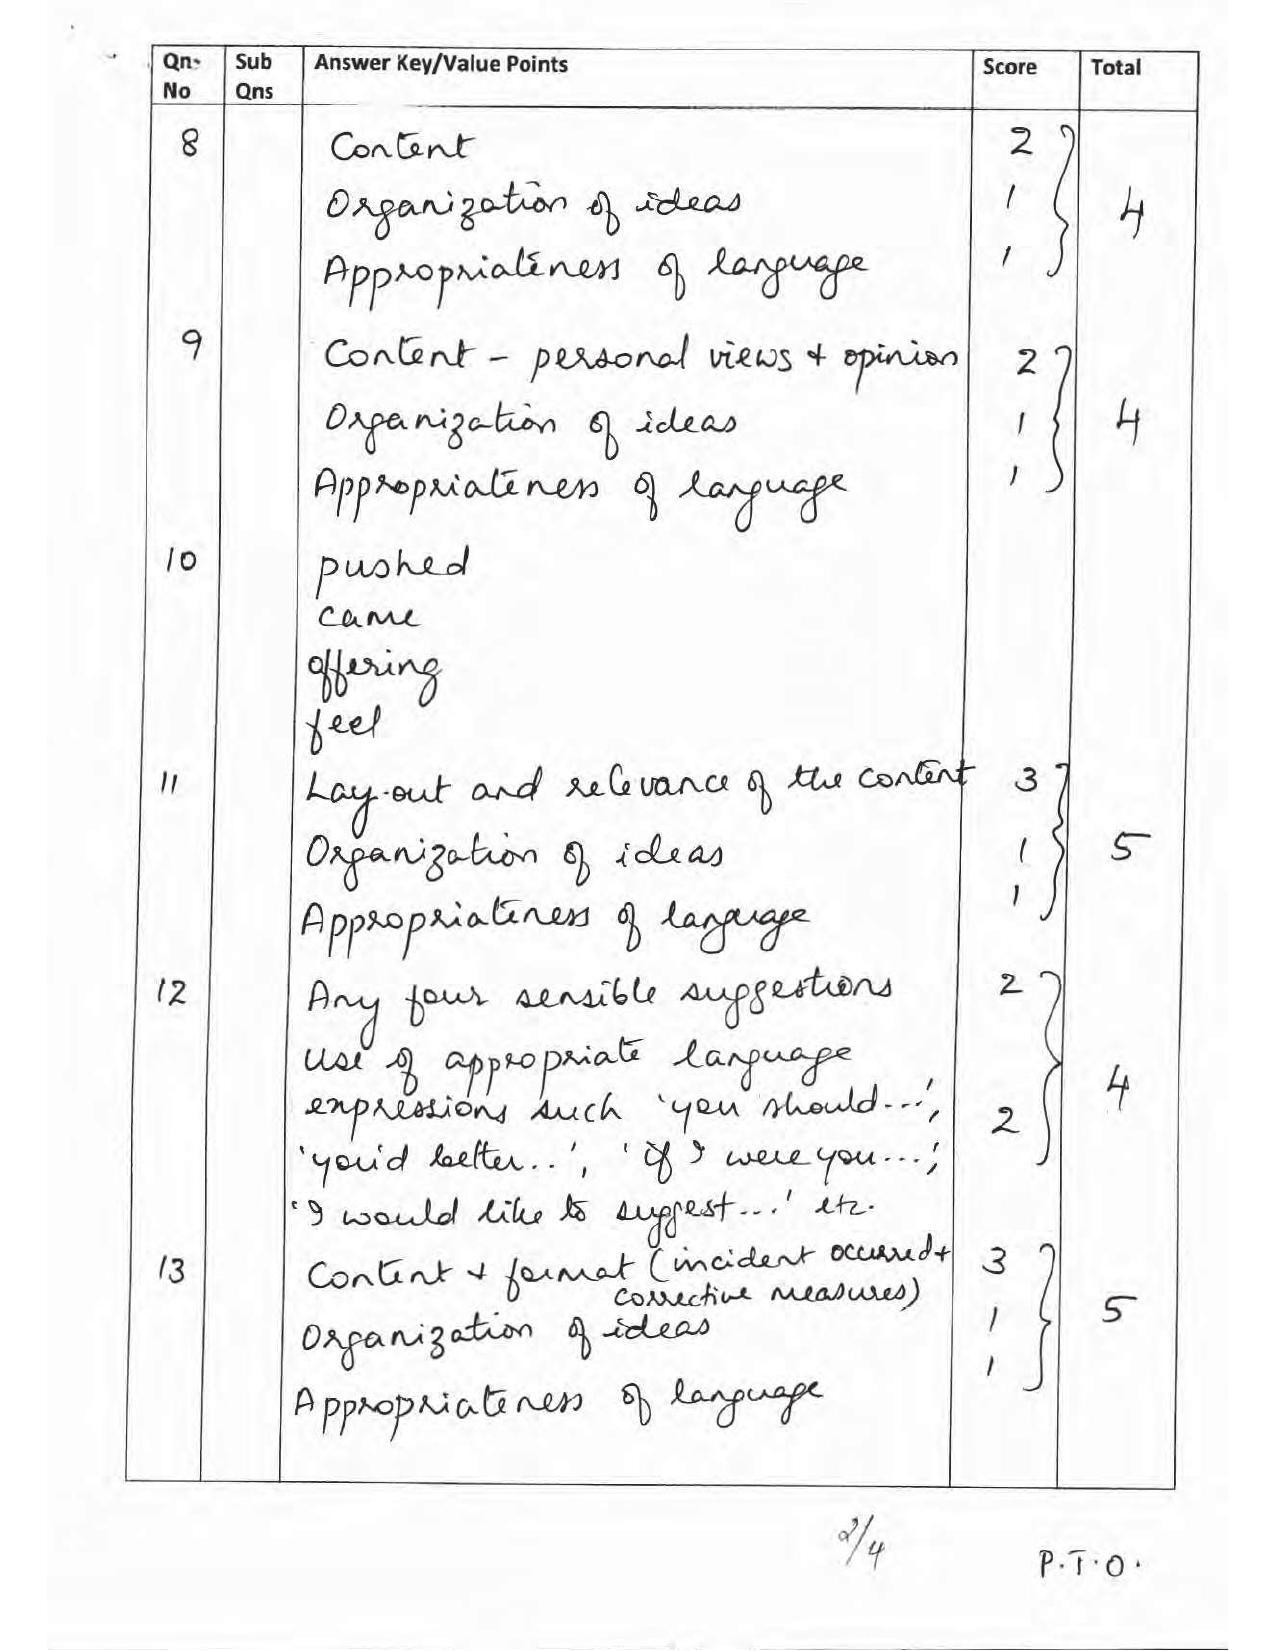 Qn- Sub Answer Key/Value Points Score Total
No Qns
8 Content 2
Organization of ideas 1 4
Appropriateness of language 1
9 Content - personal views + opinion 2
Organization of ideas 1 4
Appropriateness of language 1
10 pushed
came
offering
feel
11 Lay-out and relevance of the content 3
Organization of ideas 1 5
Appropriateness of language 1
12 Any four sensible suggestions 2
use of appropriate language 4
expressions such 'you should...', 2
'you'd better...', 'if I were you...',
'I would like to suggest...' etc.
13 Content + format (incident occurred + 3
corrective measures)
Organization of ideas 1 5
Appropriateness of language 1
2/4
P.T.O.